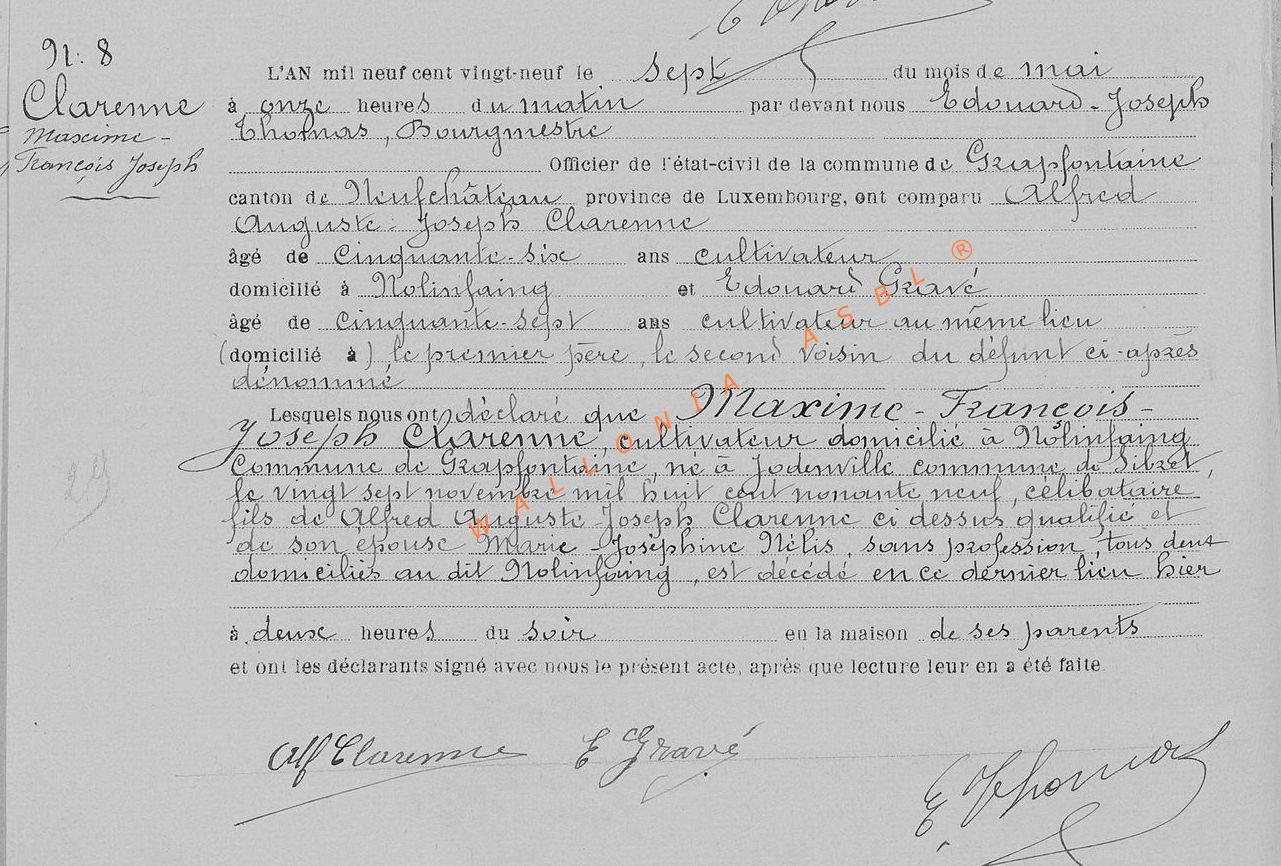 N: 8
Clarenne
Maxime-
François Joseph
L'AN mil neuf cent vingt-neuf le sept du mois de mai
à onze heures du matin par devant nous Edouard-Joseph
Thomas, Bourgmestre
Officier de l'état-civil de la commune de Grapfontaine
canton de Neufchâteau province de Luxembourg, ont comparu Alfred
Auguste-Joseph Clarenne
âgé de Cinquante-six ans cultivateur
domicilié à Nolinfaing et Edouard Gravé
âgé de cinquante-sept ans cultivateur au même lieu
(domicilié à) le premier père, le second voisin du défunt ci-après
dénommé
Lesquels nous ont déclaré que Maxime-François-
Joseph Clarenne, cultivateur domicilié à Nolinfaing
Commune de Grapfontaine, né à Jodenville commune de Sibret,
le vingt sept novembre mil huit cent nonante neuf, célibataire
fils de Alfred Auguste-Joseph Clarenne ci dessus qualifié et
de son épouse Marie-Joséphine Nélis, sans profession, tous deux
domiciliés au dit Nolinfaing, est décédé en ce dernier lieu hier
à deux heures du soir en la maison de ses parents
et ont les déclarants signé avec nous le présent acte, après que lecture leur en a été faite.
Alf Clarenne E Gravé
E Thomas
29
WALLONIA ASBL ®